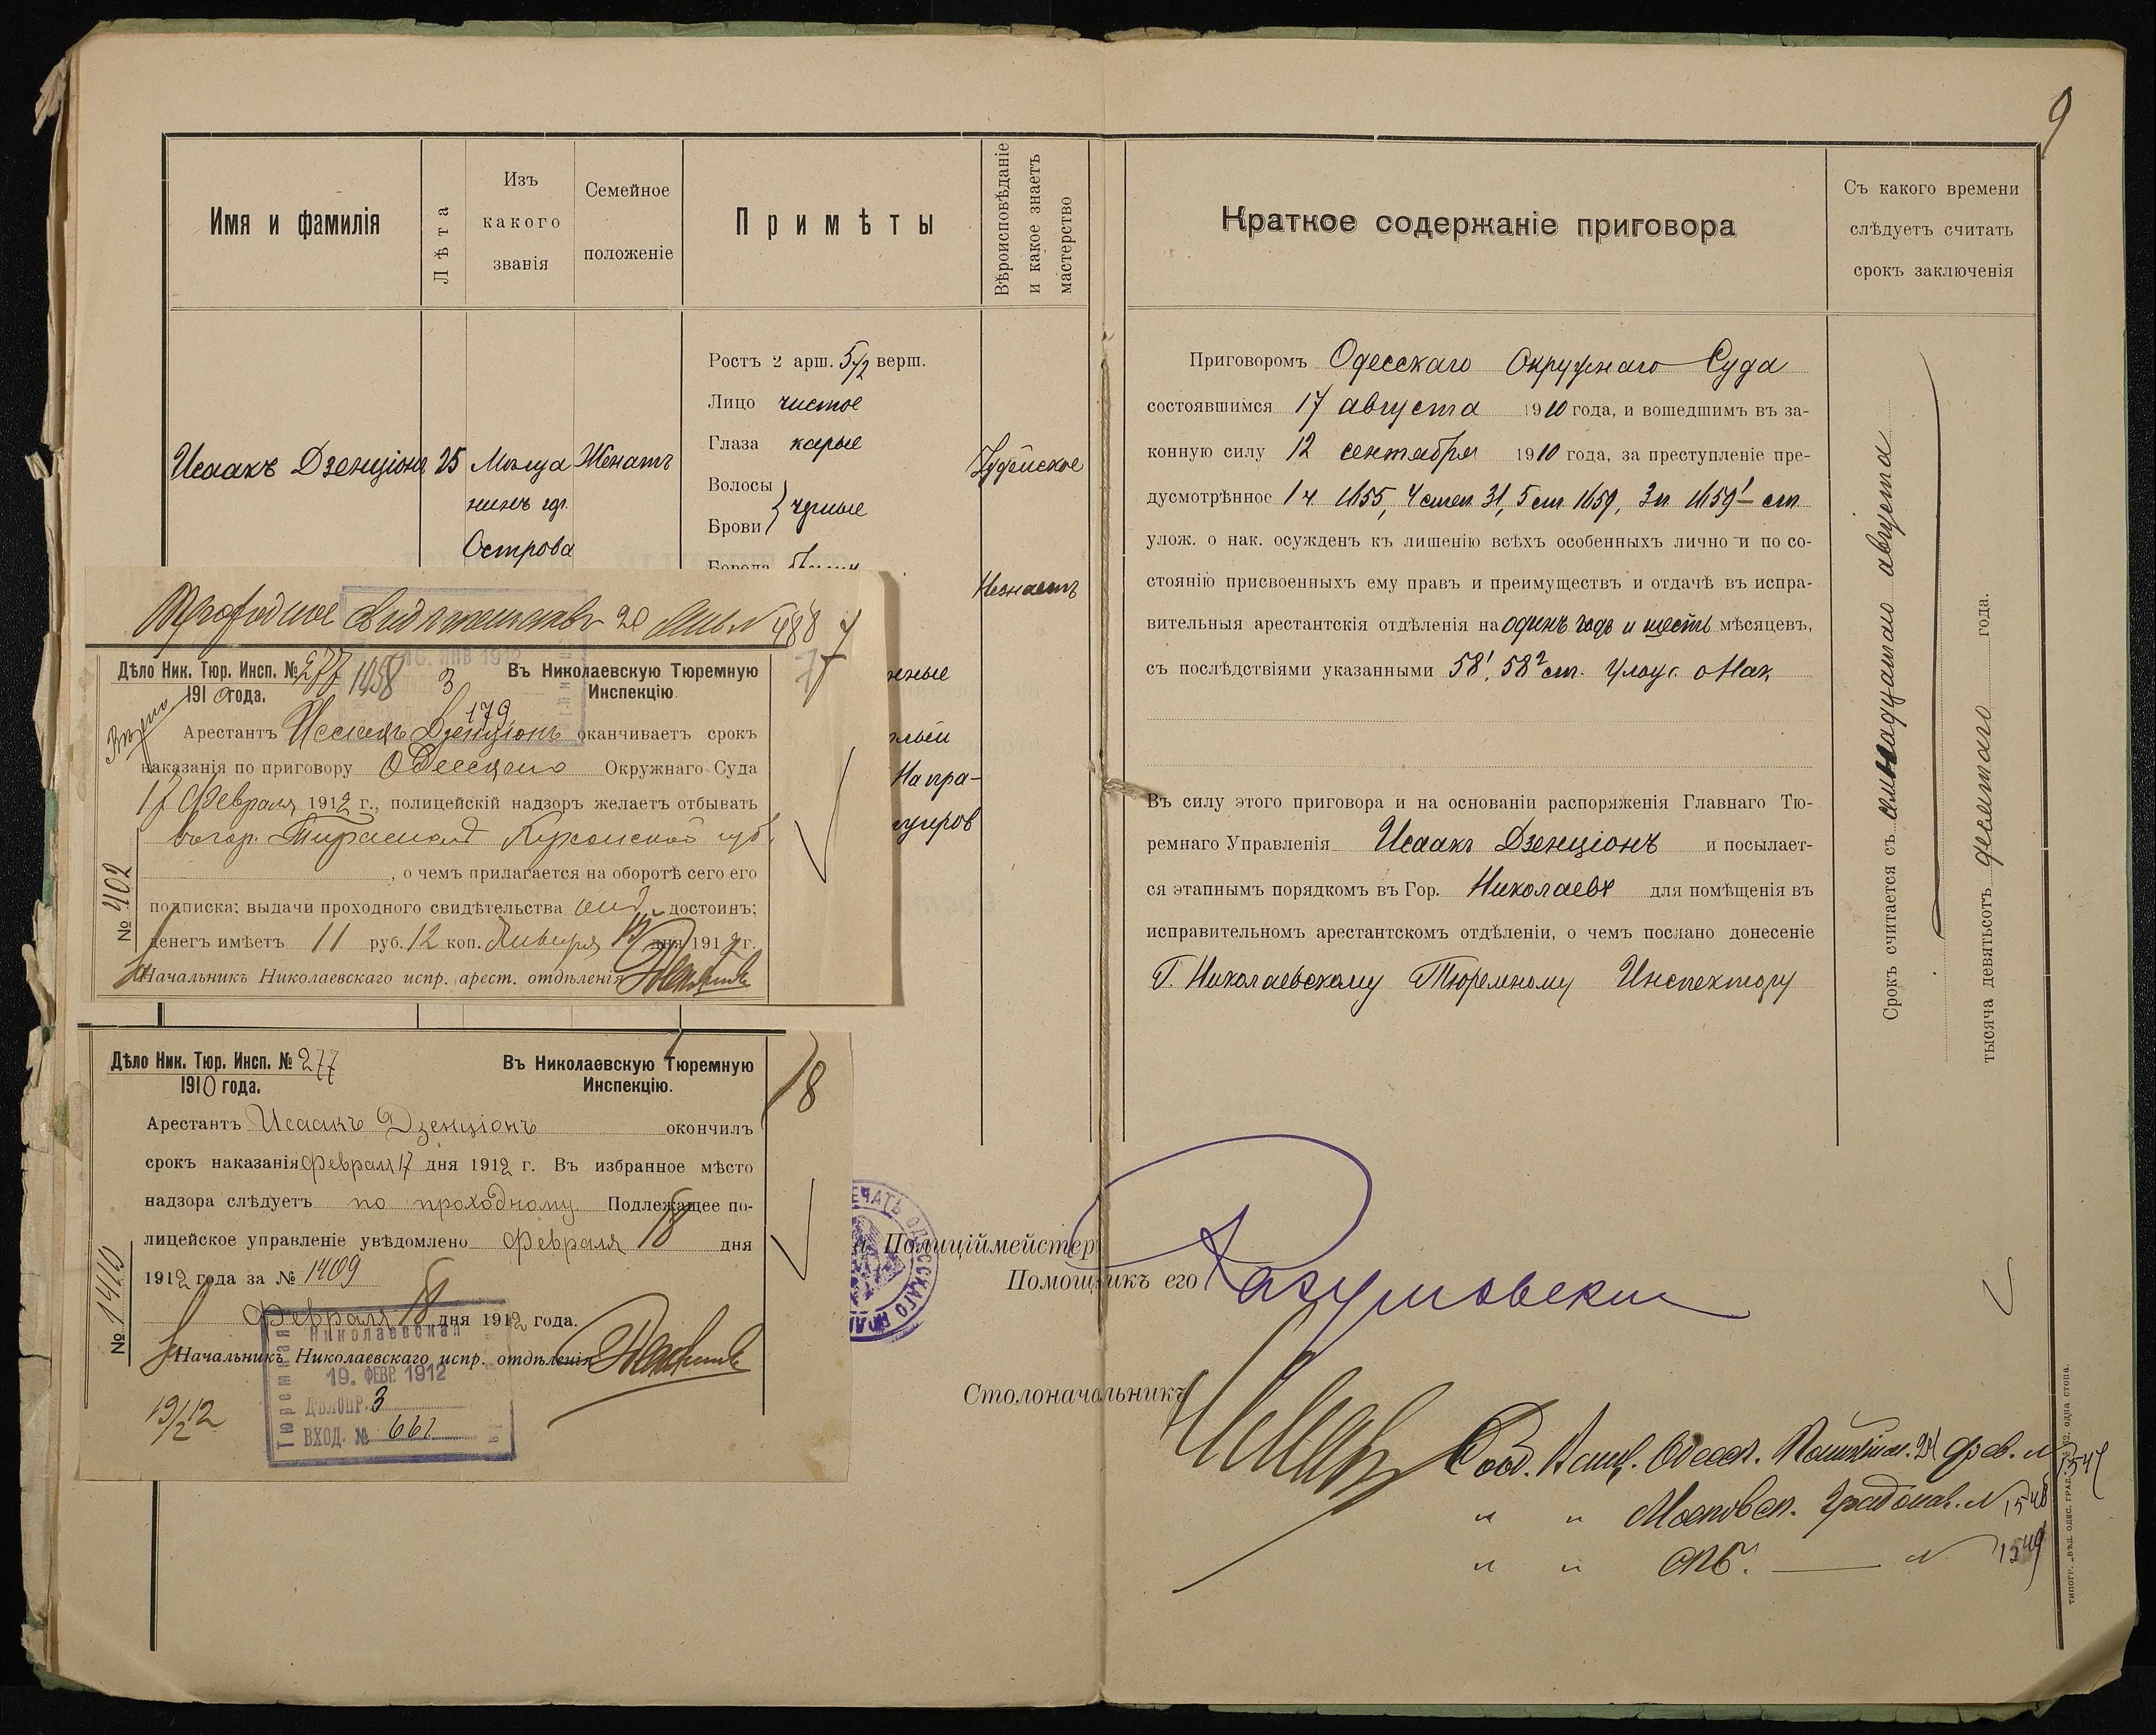 9
Имя и фамилія
Лѣта
Изъ
какого
званія
Семейное
положеніе
Примѣты
Вѣроисповѣданіе
и какое знаетъ
мастерство
Исаакъ Дзенціонъ
25
Мѣща
нинъ гор.
Острова
Женатъ
Ростъ 2 арш. 5 1/2 верш.
Лицо чистое
Глаза карые
Волосы
Брови } черные
Борода
Іудейское
Незнаетъ
Напра-
Проходное свидѣтельство 20 Янв № 488
7
16. ЯНВ 1912
Дѣло Ник. Тюр. Инсп. № 277
1910 года.
1058
3
179
Въ Николаевскую Тюремную
Инспекцію.
Арестантъ Исаакъ Дзенціонъ оканчиваетъ срокъ
наказанія по приговору Одесскаго Окружнаго Суда
17 Февраля 1912 г., полицейскій надзоръ желаетъ отбывать
въ гор. Тирасполѣ Херсонской губ.
, о чемъ прилагается на оборотѣ сего его
подписка; выдачи проходного свидѣтельства достоинъ;
денегъ имѣетъ 11 руб. 12 коп. Января дня 1912 г.
Начальникъ Николаевскаго испр. арест. отдѣленія
№ 402
Дѣло Ник. Тюр. Инсп. № 277
1910 года.
Въ Николаевскую Тюремную
Инспекцію.
18
Арестантъ Исаакъ Дзенціонъ окончилъ
срокъ наказанія Февраля 17 дня 1912 г. Въ избранное мѣсто
надзора слѣдуетъ по проходному Подлежащее по-
лицейское управленіе увѣдомлено Февраля 18 дня
1912 года за № 1409
Февраля 18 дня 1912 года.
Начальникъ Николаевскаго испр. отдѣленія
№ 1410
Николаевская
Тюремная
19. ФЕВР. 1912
ДѢЛОПР. 3
ВХОД. № 661
19/2 12
Краткое содержаніе приговора
Съ какого времени
слѣдуетъ считать
срокъ заключенія
Приговоромъ Одесскаго Окружнаго Суда
состоявшимся 17 августа 1910 года, и вошедшимъ въ за-
конную силу 12 сентября 1910 года, за преступленіе пре-
дусмотрѣнное 1 ч. 1655, 4 степ. 31, 5 ст 1659, 3 п. 1659¹ ст
улож. о нак. осужденъ къ лишенію всѣхъ особенныхъ лично и по со-
стоянію присвоенныхъ ему правъ и преимуществъ и отдачѣ въ испра-
вительныя арестантскія отдѣленія на одинъ годъ и шесть мѣсяцевъ,
съ послѣдствіями указанными 58¹, 58² ст. Улож. о Нак
Въ силу этого приговора и на основаніи распоряженія Главнаго Тю-
ремнаго Управленія Исаакъ Дзенціонъ и посылает-
ся этапнымъ порядкомъ въ Гор. Николаевъ для помѣщенія въ
исправительномъ арестантскомъ отдѣленіи, о чемъ послано донесеніе
Г. Николаевскому Тюремному Инспектору
Срокъ считается съ семнадцатаго августа
тысяча девятьсотъ десятаго года.
Полиціймейстер
Помощникъ его
Столоначальникъ
ПЕЧАТЬ ОДЕССКАГО
Сооб. Канц. Одесск. 24 фев. № 1547
" " Московск. Градонач. № 1548
" " СПб. — № 1549